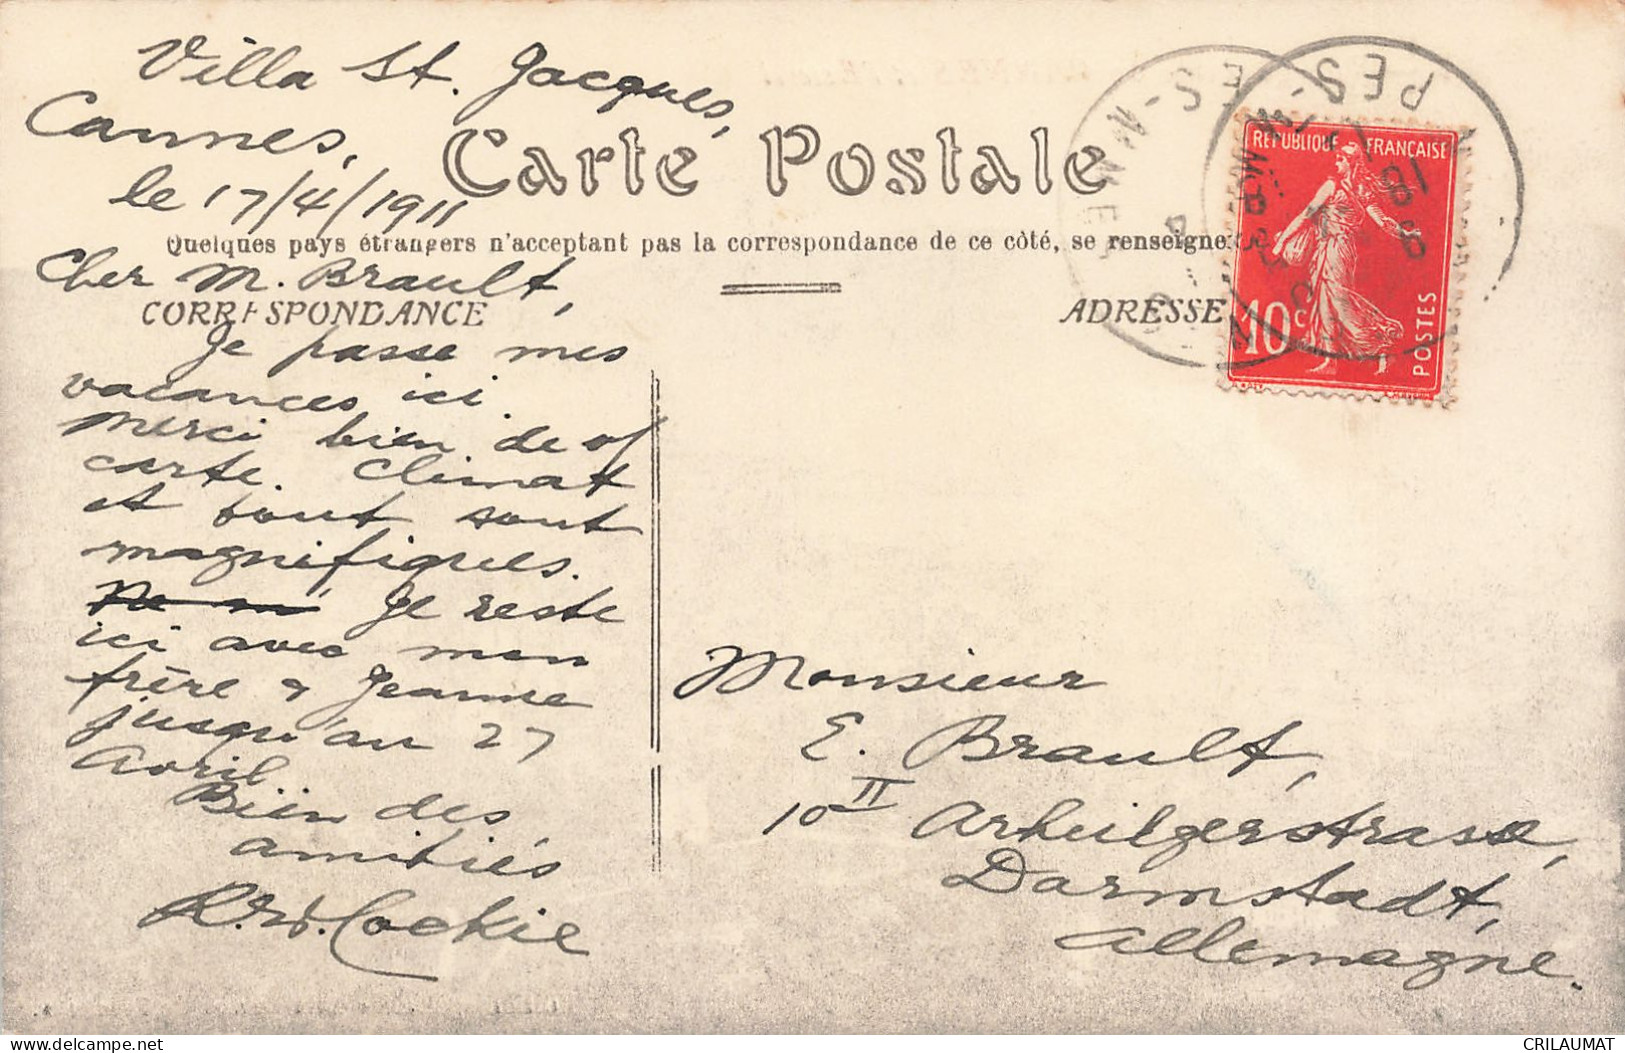 Villa St. Jacques,
Cannes,
le 17/4/1911
Carte Postale
Quelques pays étrangers n'acceptent pas la correspondance de ce côté, se renseigner
Cher M. Brault,
CORRESPONDANCE
Je passe mes
vacances ici.
Merci bien de
carte. Climat
et tout sont
magnifiques.
Je reste
ici avec mon
frère & Jeanne
jusqu'au 27
Avril
Bien des
amitiés
R. W. Cockie
ADRESSE
REPUBLIQUE FRANÇAISE
10c
POSTES
Monsieur
E. Brault,
10 II Arheilgerstrasse,
Darmstadt,
Allemagne.
CRILAUMAT